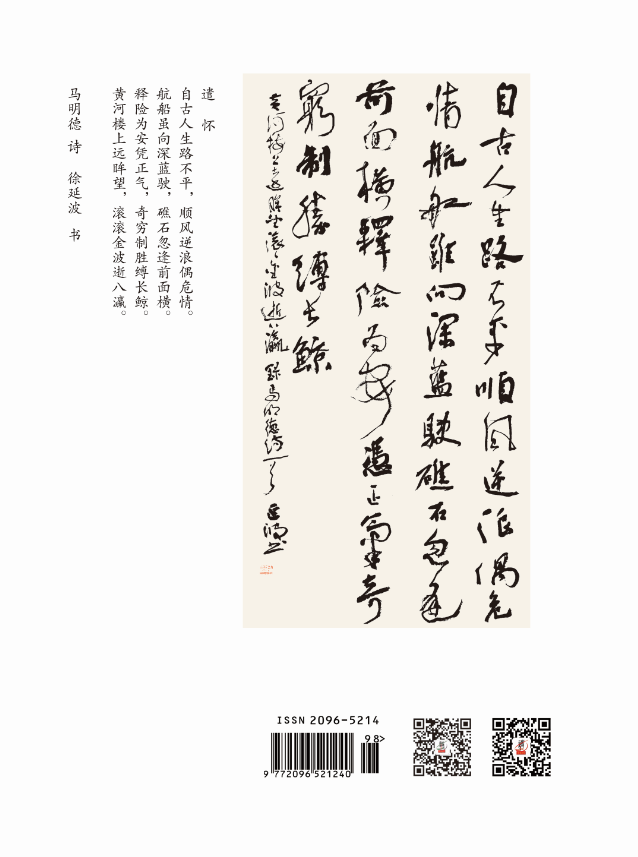 自古人生路不平順風逆浪偶危
情航船雖向深藍駛礁石忽逢
前面横釋險为安憑正氣奇
窮制勝縛長鯨
黄河楼上远眸望滚滚金波逝八瀛 錄马明德诗一首 延波书
遣怀
自古人生路不平，顺风逆浪偶危情。
航船虽向深蓝驶，礁石忽逢前面横。
释险为安凭正气，奇穷制胜缚长鲸。
黄河楼上远眸望，滚滚金波逝八瀛。
马明德 诗 徐延波 书
ISSN 2096-5214
98>
9 772096 521240